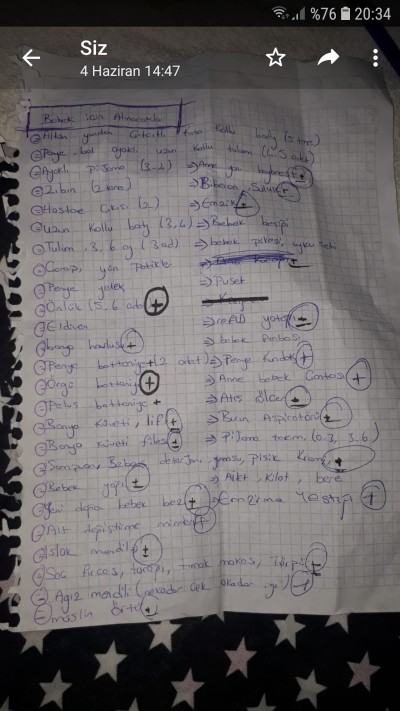 %76 20:34
Siz
4 Haziran 14:47
Bebek için Alınacaklar
Alttan yandan Çıtçıtlı kısa kollu body (5 tane)
Penye bol ayaklı uzun kollu tulum (4-5 adet)
Ayaklı Pijama (3-4)
Zıbın (2 tane)
Hastane Çıkışı (2)
Uzun kollu baty (3,4)
Tulum, 3, 6 ay (3 ad)
Çorap, yün Patikler
Penye yelek
Önlük (5, 6 adet) +
Eldiven
banyo havlusu +
Penye battaniye + (2 adet)
Örgü battaniye +
Peluş battaniye +
Banyo Küveti, lif +
Banyo Küveti filesi +
Şampuan, Bebe deterjanı, Pişik Kremi, +
Bebek yağı +
Yeni doğan bebek bezi +
Alt değiştirme minderi +
Islak mendil +
Saç fırçası, tarağı, tırnak makası, Törpü +
Ağız mendili (nekadar çok okadar iyi) +
müslin Örtü +
Biberon, Suluk +
Emzik +
Bebek beşiği
bebek pikesi, uyku seti
Puset
yatağı +
bebek Ambası
Penye Kundak +
Anne bebek Çantası +
Ateş ölçer +
Burun Aspiratörü +
Pijama takım (0.3, 3.6)
Atlet, Kilot, bere
Emzirme Yastığı +